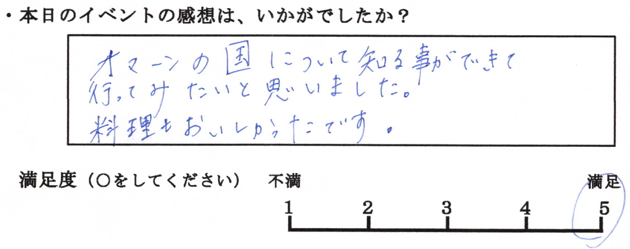 ・本日のイベントの感想は、いかがでしたか？
オマーンの国について知る事ができて
行ってみたいと思いました。
料理もおいしかったです。
満足度（○をしてください） 不満 満足
1 2 3 4 5